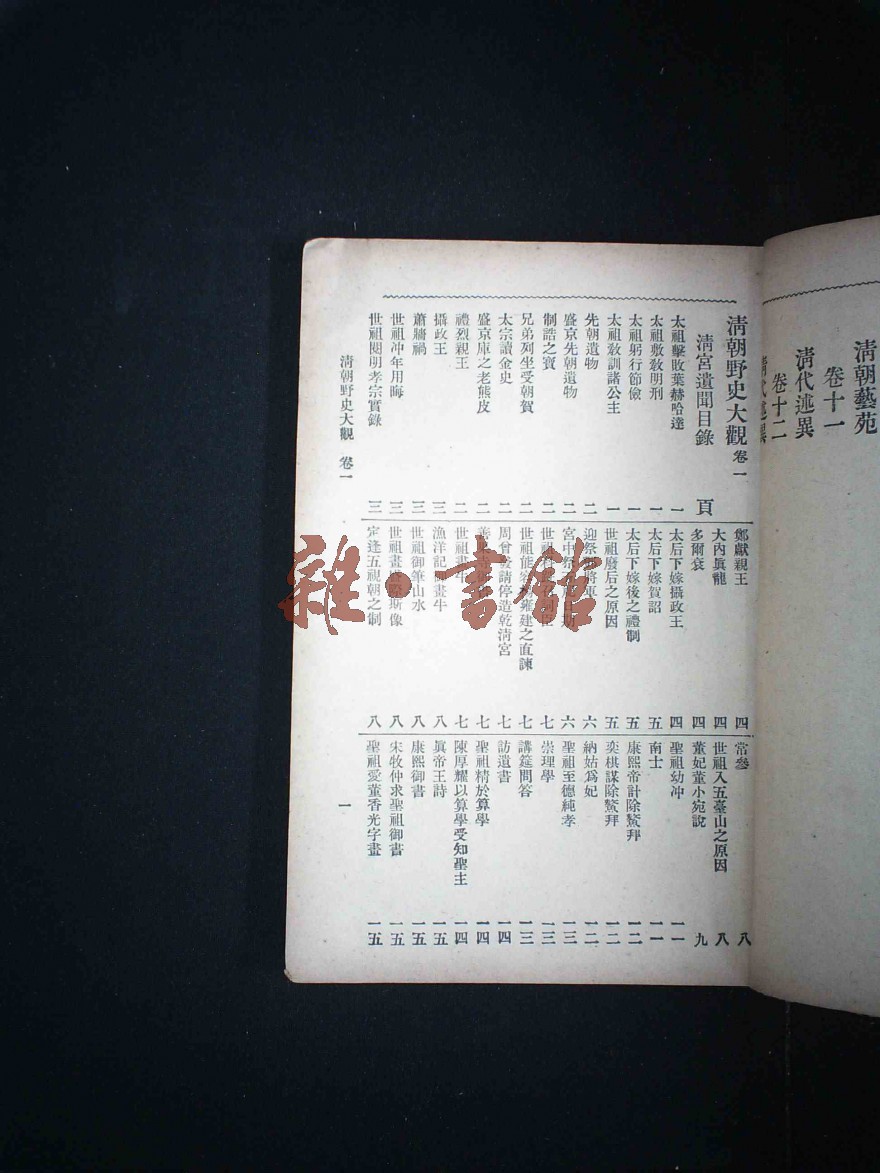 清朝藝苑
卷十一
清代述異
卷十二
清代述異
清朝野史大觀 卷一
清宮遺聞目錄 頁
太祖擊敗葉赫哈達 一
太祖敷敎明刑 一
太祖躬行節儉 一
太祖敎訓諸公主 一
先朝遺物 二
盛京先朝遺物 二
制誥之寶 二
兄弟列坐受朝賀 二
太宗讀金史 二
盛京庫之老熊皮 二
禮烈親王 二
攝政王 三
蕭牆禍 三
世祖冲年用晦 三
世祖閱明孝宗實錄 三
鄭獻親王 四
大內眞龍 四
多爾袞 四
太后下嫁攝政王 四
太后下嫁賀詔 五
太后下嫁後之禮制 五
世祖廢后之原因 五
迎祭 六
宮中祭 六
世祖 七
世祖能容 雍建之直諫 七
周曾 請停造乾淸宮 七
七
世祖畫牛 七
漁洋記 畫牛 八
世祖御筆山水 八
世祖畫 斯像 八
定逢五視朝之制 八
常參 八
世祖入五臺山之原因 八
董妃董小宛說 九
聖祖幼冲 一一
南士 一一
康熙帝計除鰲拜 一二
奕棋謀除鰲拜 一二
納姑爲妃 一二
聖祖至德純孝 一三
崇理學 一三
講筵問答 一三
訪遺書 一四
聖祖精於算學 一四
陳厚耀以算學受知聖主 一四
眞帝王詩 一五
康熙御書 一五
朱牧仲求聖祖御書 一五
聖祖愛董香光字畫 一五
清朝野史大觀 卷一
一
雜·書館